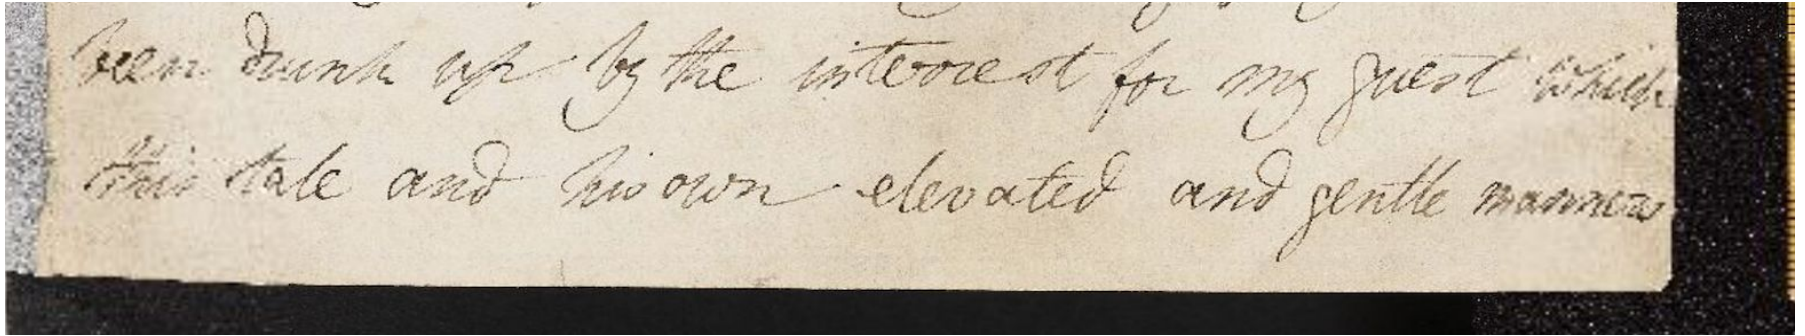 been drunk up by the interest for my guest which
this tale and his own elevated and gentle manners